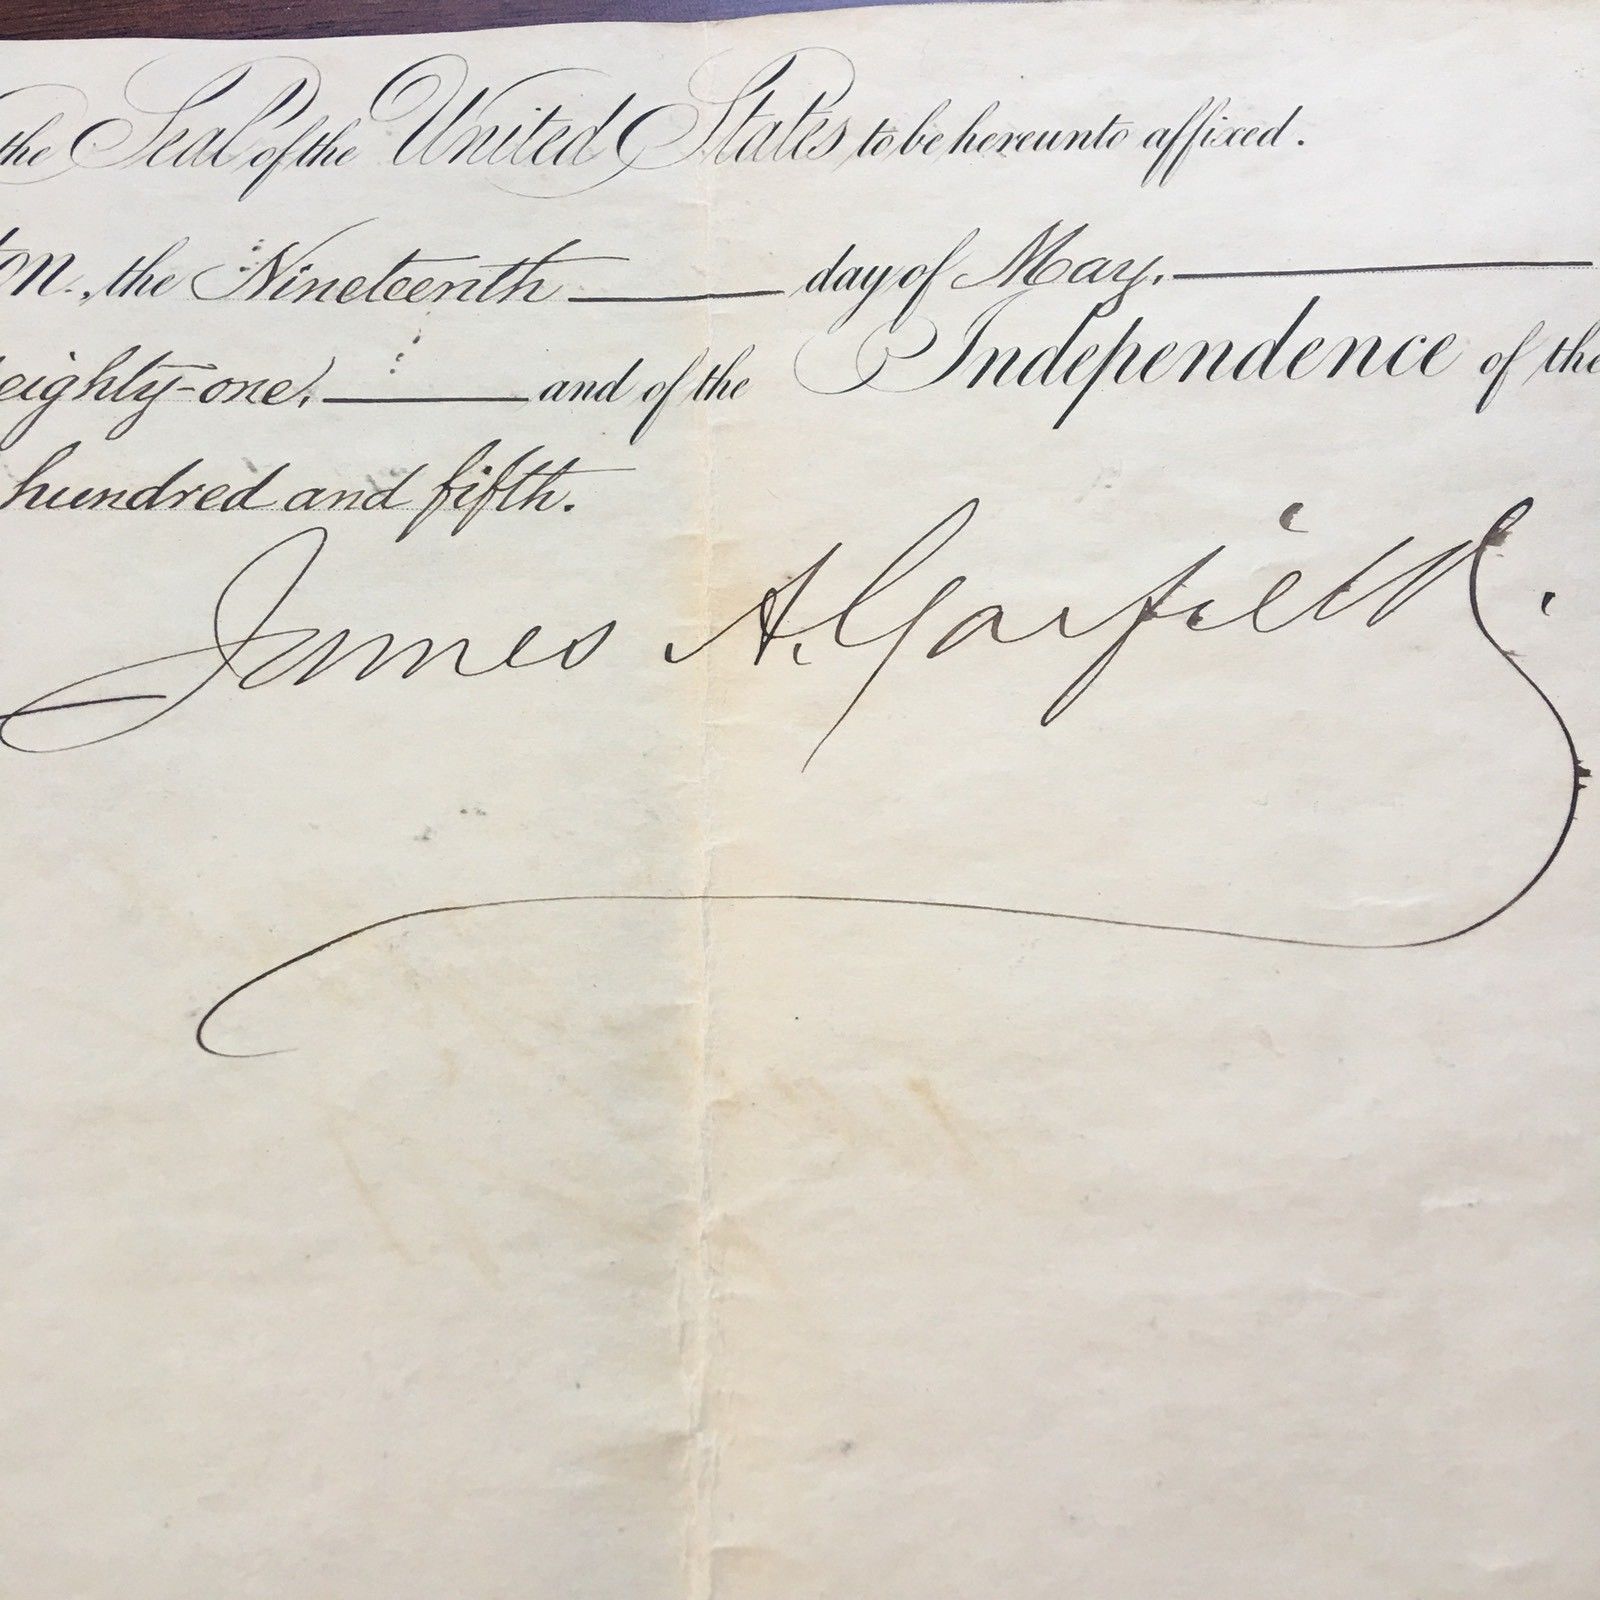 the Seal of the United States to be hereunto affixed.
on, the Nineteenth day of May,
eighty-one, and of the Independence of the
hundred and fifth.
James A. Garfield.